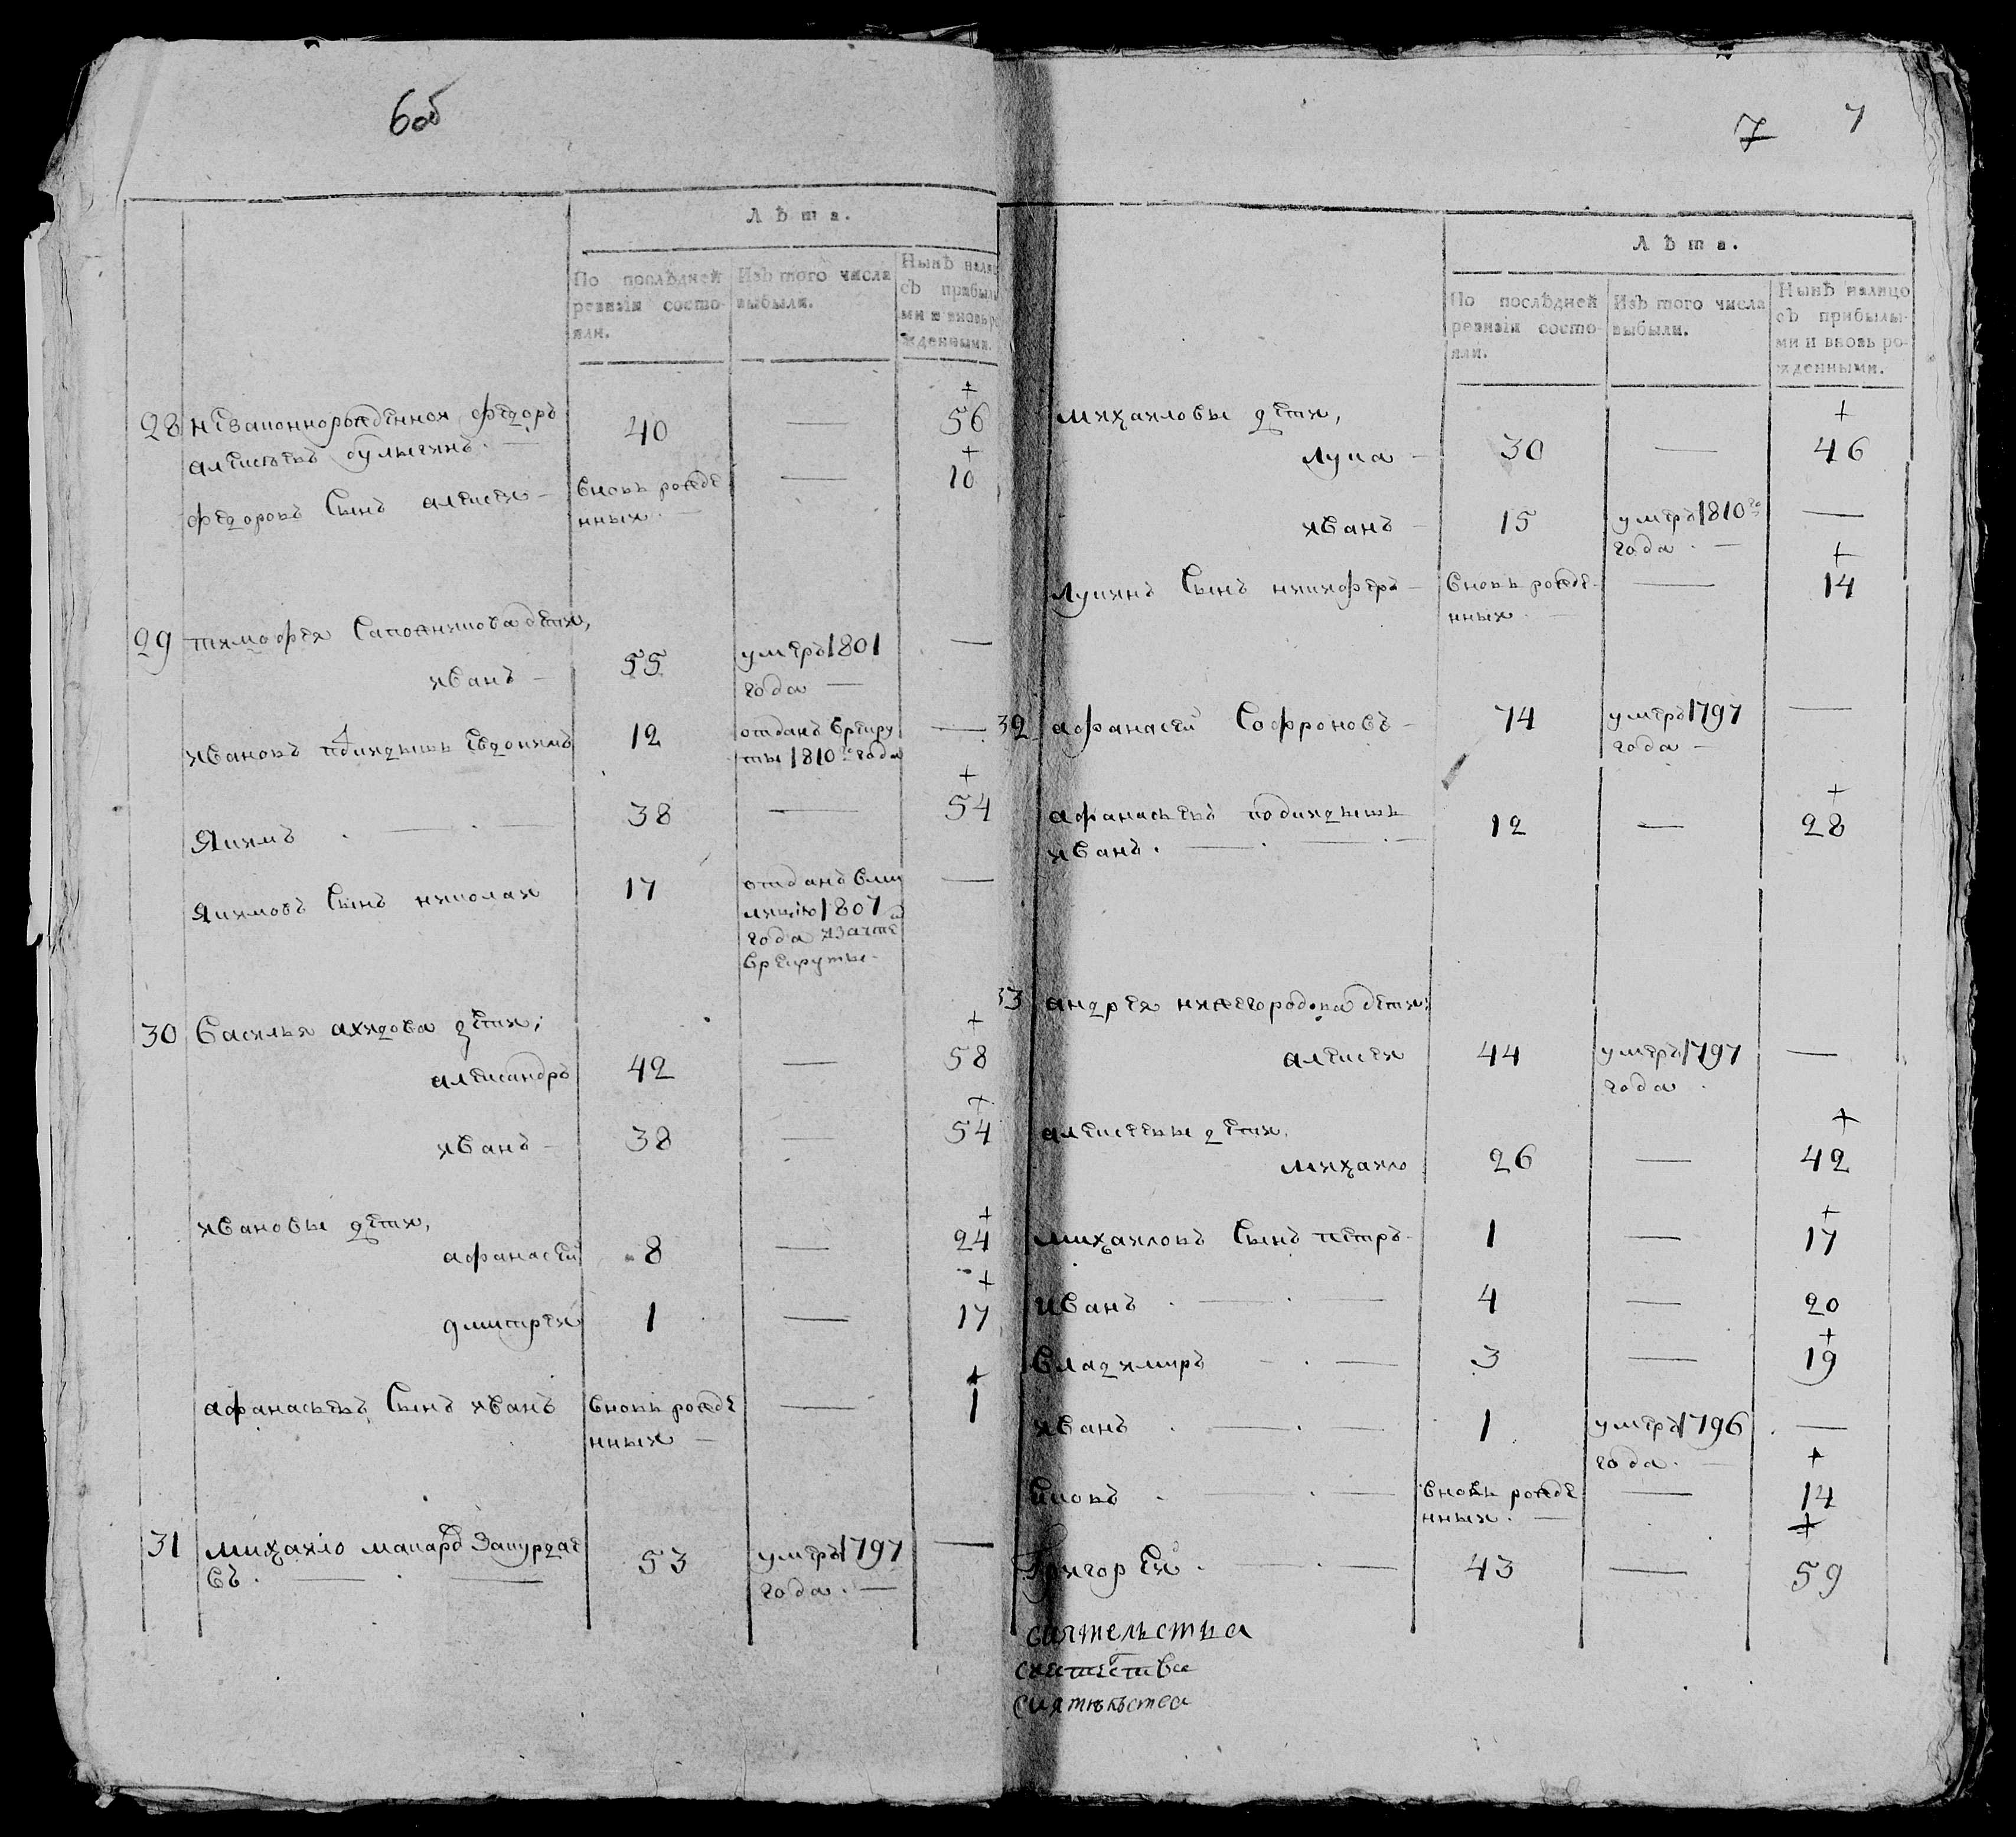 6об
Лѣта.
По послѣдней ревизіи состояли.
Изъ того числа выбыли.
Нынѣ налиц съ прибылыми и вновь рожденными.
28 незаконнорожденной федоръ 40 — + 56
алексѣевъ булыгинъ. —
федоровъ Сынъ алексей — вновь рожде — + 10
нных. —
29 тимофея Сапожникова дети,
иванъ — 55 умеръ 1801 —
года —
ивановъ подкидышь Евдокимъ 12 отданъ врекру —
ты 1810го года
Якимъ . — . — 38 — + 54
Якимовъ Сынъ николай 17 отданъ вми —
лицію 1807
года изачте
врекруты.
30 Василья ахидова дети;
александръ 42 — + 58
иванъ — 38 — + 54
ивановы дети,
афанасей 8 — + 24
дмитрей 1 — + 17
афанасьевъ Сынъ иванъ вновь рожде — + 1
нных —
31 михайло макаръ 53 умеръ 1797 —
въ. — . — года. —
7 7
Лѣта.
По послѣдней ревизіи состояли.
Изъ того числа выбыли.
Нынѣ налицо съ прибылыми и вновь рожденными.
михайловы дети,
лука — 30 — + 46
иванъ — 15 умеръ 1810го —
года. —
лукинъ Сынъ никифоръ — вновь рожде — + 14
нных. —
32 афанасей Софроновъ — 74 умеръ 1797 —
года —
афанасьевъ подкидышь 12 — + 28
иванъ. — . — . —
33 андрея нижегородова дети:
алексей 44 умеръ 1797 —
года.
алексеевы дети,
михайло 26 — + 42
михайловъ Сынъ петръ — 1 — + 17
иванъ . — . — 4 — 20
владимиръ — . — 3 — + 19
иванъ . — . — 1 умеръ 1796 . —
года. —
вновь рожде — + 14
нных. —
Григорей . — . — 43 — + 59
сиятельства
сиятельства